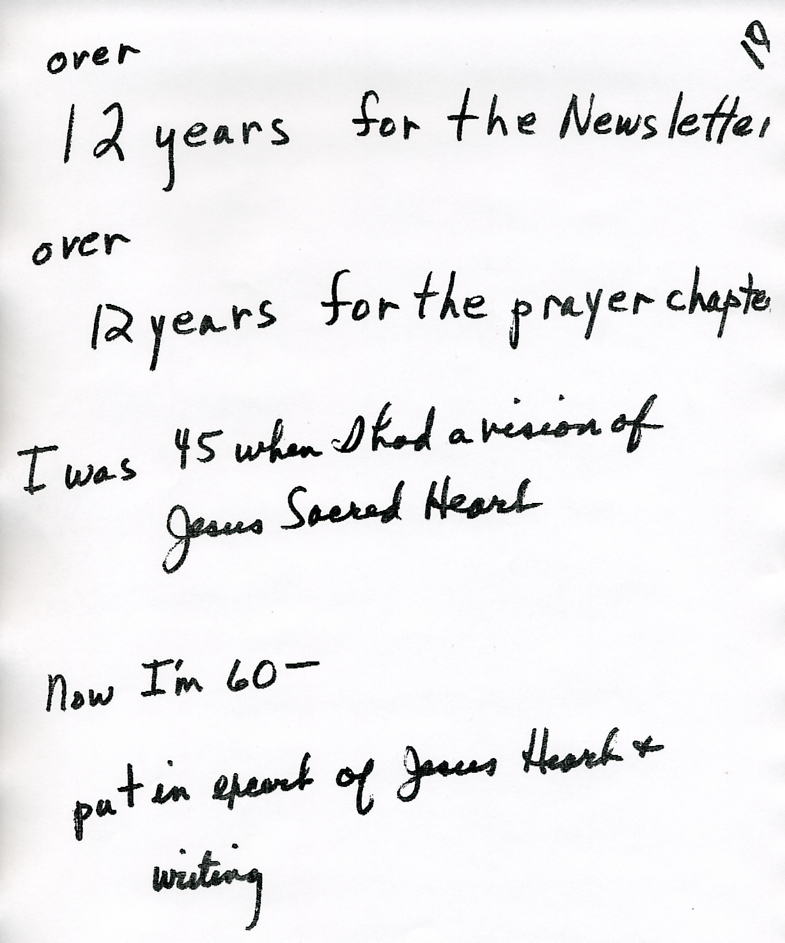 over
12 years for the Newsletter
over
12 years for the prayer chapte
I was 45 when I had a vision of
Jesus Sacred Heart
Now I'm 60 —
put in of Jesus Heart &
writing